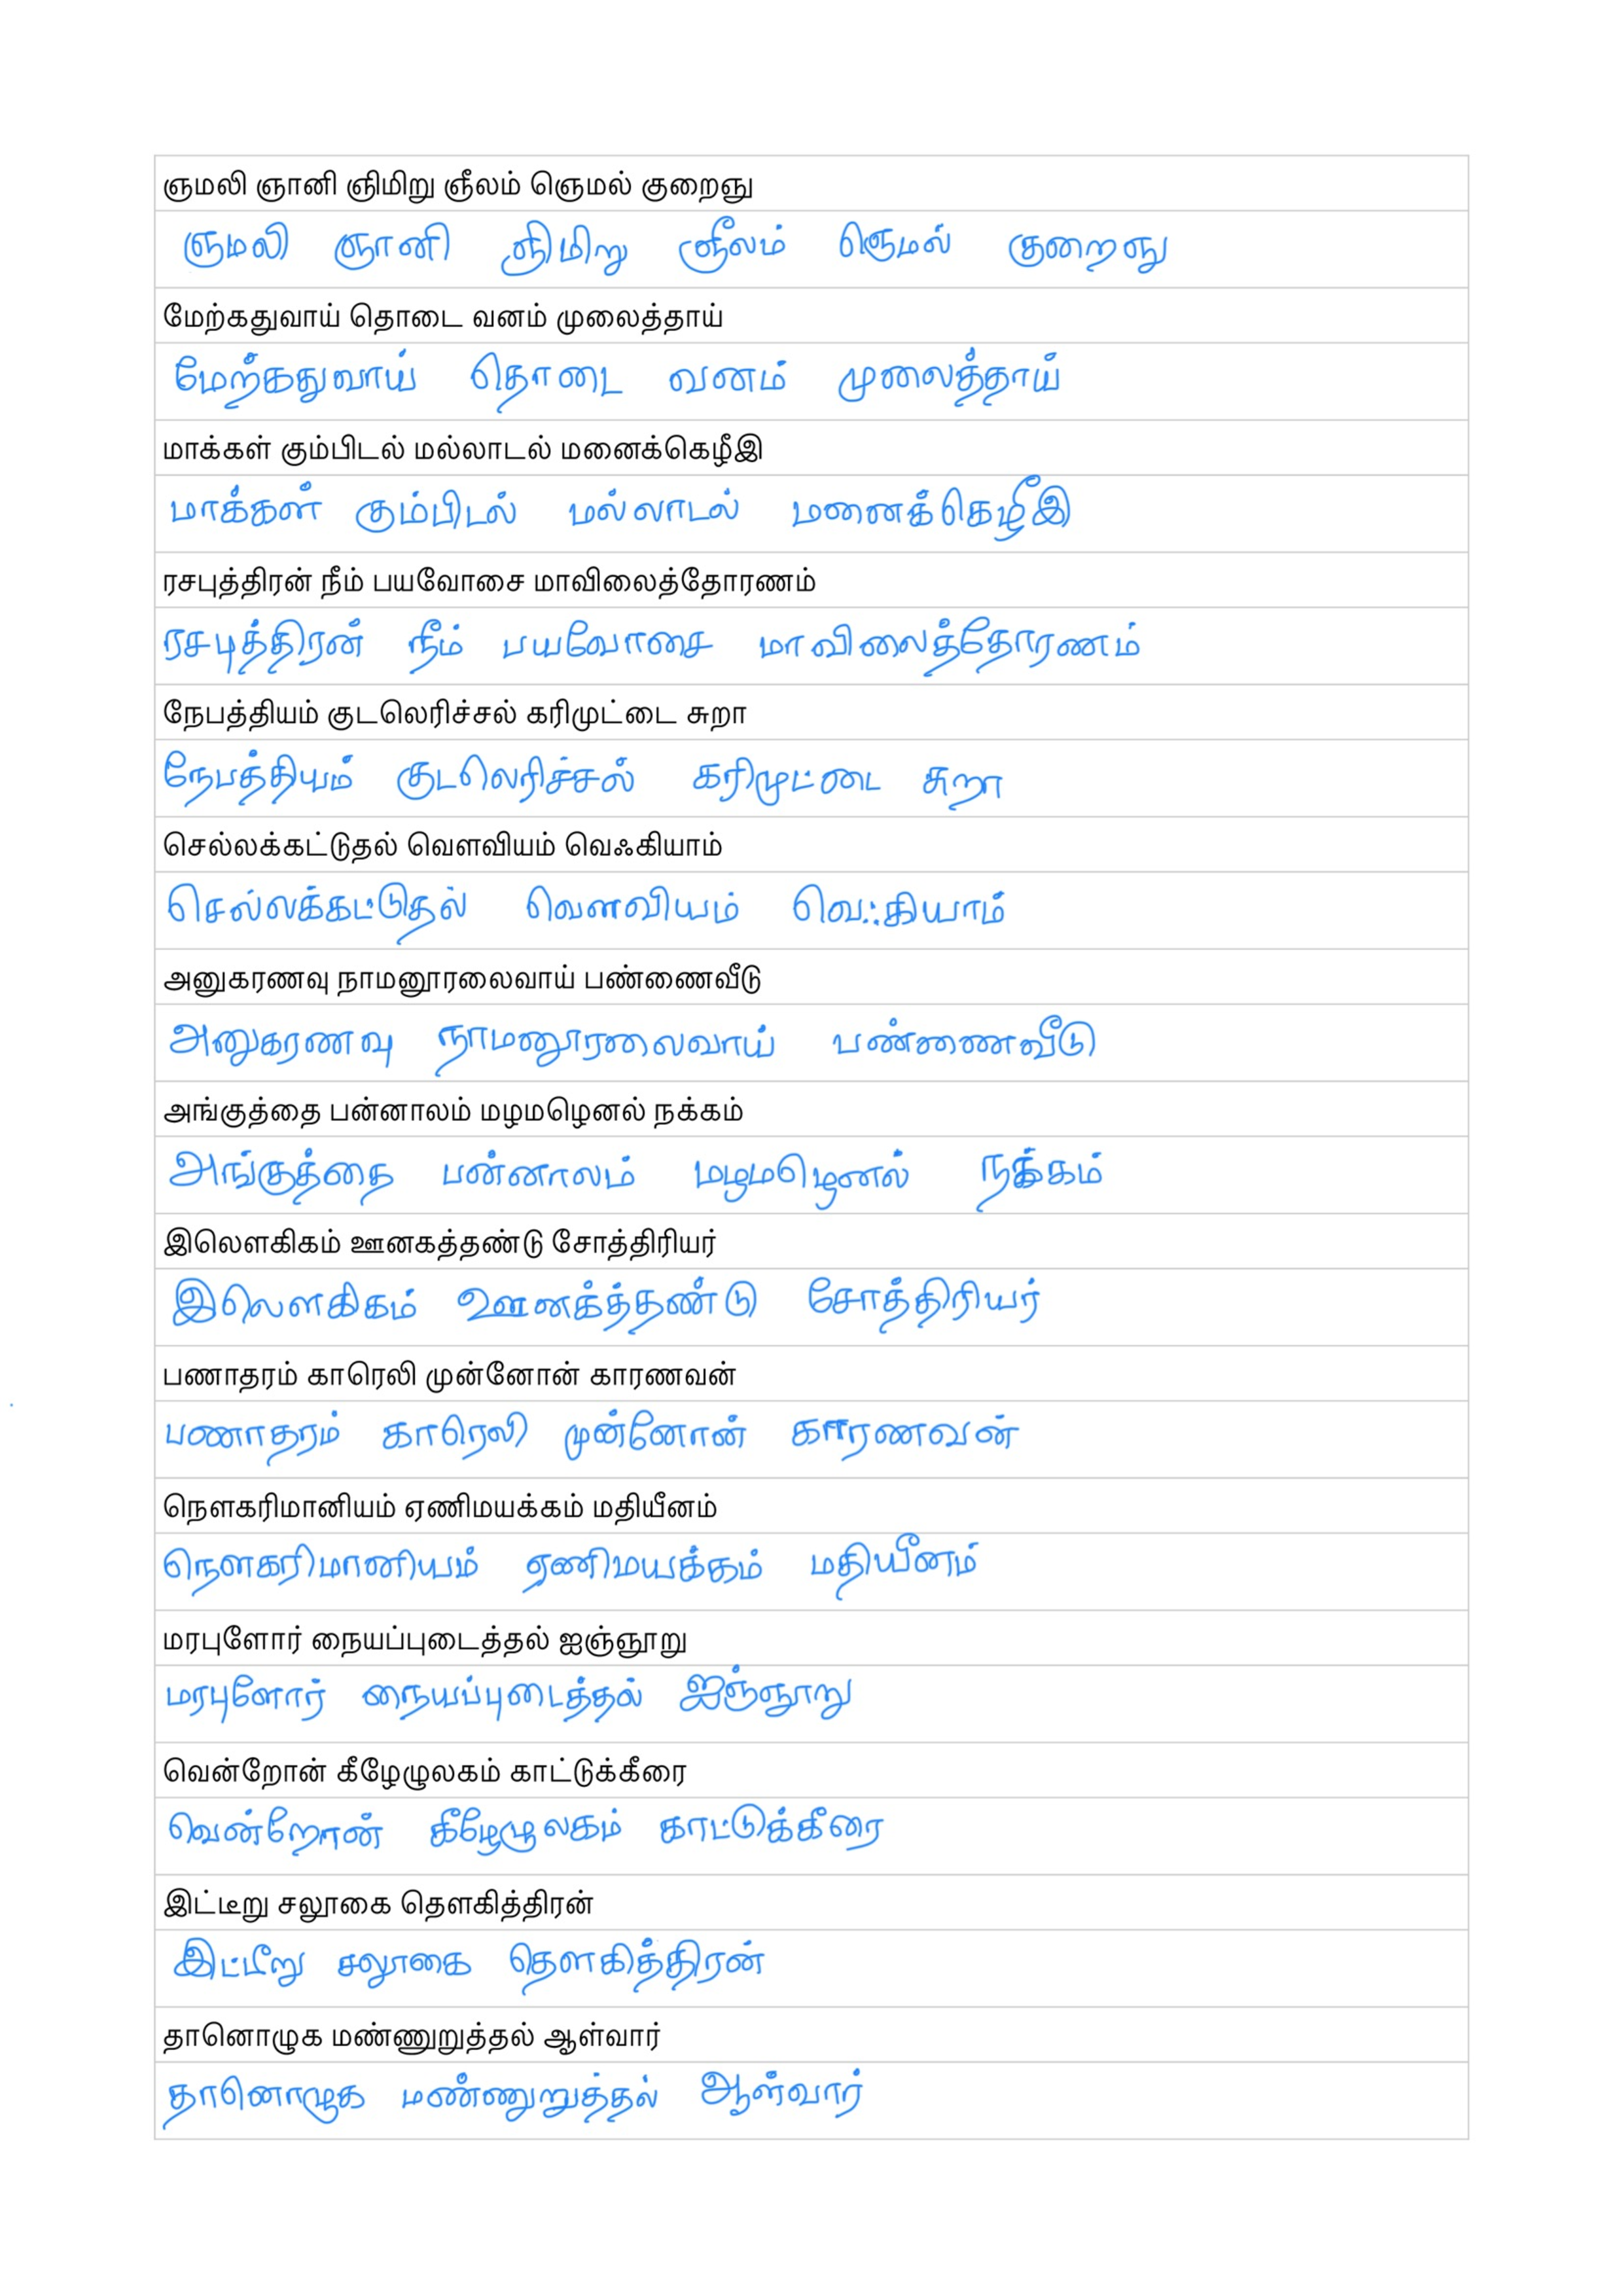 ஞமலி ஞானி ஞிமிறு ஞீலம் ஞெமல் குறைஞு
ஞமலி ஞானி ஞிமிறு ஞீலம் ஞெமல் குறைஞு
மேற்கதுவாய் தொடை வனம் முலைத்தாய்
மேற்கதுவாய் தொடை வனம் முலைத்தாய்
மாக்கள் கும்பிடல் மல்லாடல் மனைக்கெழீஇ
மாக்கள் கும்பிடல் மல்லாடல் மனைக்கெழீஇ
ரசபுத்திரன் நீம் பயவோசை மாவிலைத்தோரணம்
ரசபுத்திரன் நீம் பயவோசை மாவிலைத்தோரணம்
நேபத்தியம் குடலெரிச்சல் கரிமுட்டை சுறா
நேபத்தியம் குடலெரிச்சல் கரிமுட்டை சுறா
செல்லக்கட்டுதல் வெளவியம் வெஃகியாம்
செல்லக்கட்டுதல் வெளவியம் வெஃகியாம்
அனுகரணவு நாமனூரலைவாய் பண்ணைவீடு
அனுகரணவு நாமனூரலைவாய் பண்ணைவீடு
அங்குத்தை பன்னாலம் மழமழெனல் நக்கம்
அங்குத்தை பன்னாலம் மழமழெனல் நக்கம்
இலௌகிகம் ஊனகத்தண்டு சோத்திரியர்
இலௌகிகம் ஊனகத்தண்டு சோத்திரியர்
பணாதரம் காரெலி முன்னோன் காரணவன்
பணாதரம் காரெலி முன்னோன் காரணவன்
நௌகரிமானியம் ஏணிமயக்கம் மதியீனம்
நௌகரிமானியம் ஏணிமயக்கம் மதியீனம்
மரபுளோர் நையப்புடைத்தல் ஐஞ்ஞூறு
மரபுளோர் நையப்புடைத்தல் ஐஞ்ஞூறு
வென்றோன் கீழேழுலகம் காட்டுக்கீரை
வென்றோன் கீழேழுலகம் காட்டுக்கீரை
இட்டீறு சலூகை தௌகித்திரன்
இட்டீறு சலூகை தௌகித்திரன்
தானொழுக மண்ணுறுத்தல் ஆள்வார்
தானொழுக மண்ணுறுத்தல் ஆள்வார்